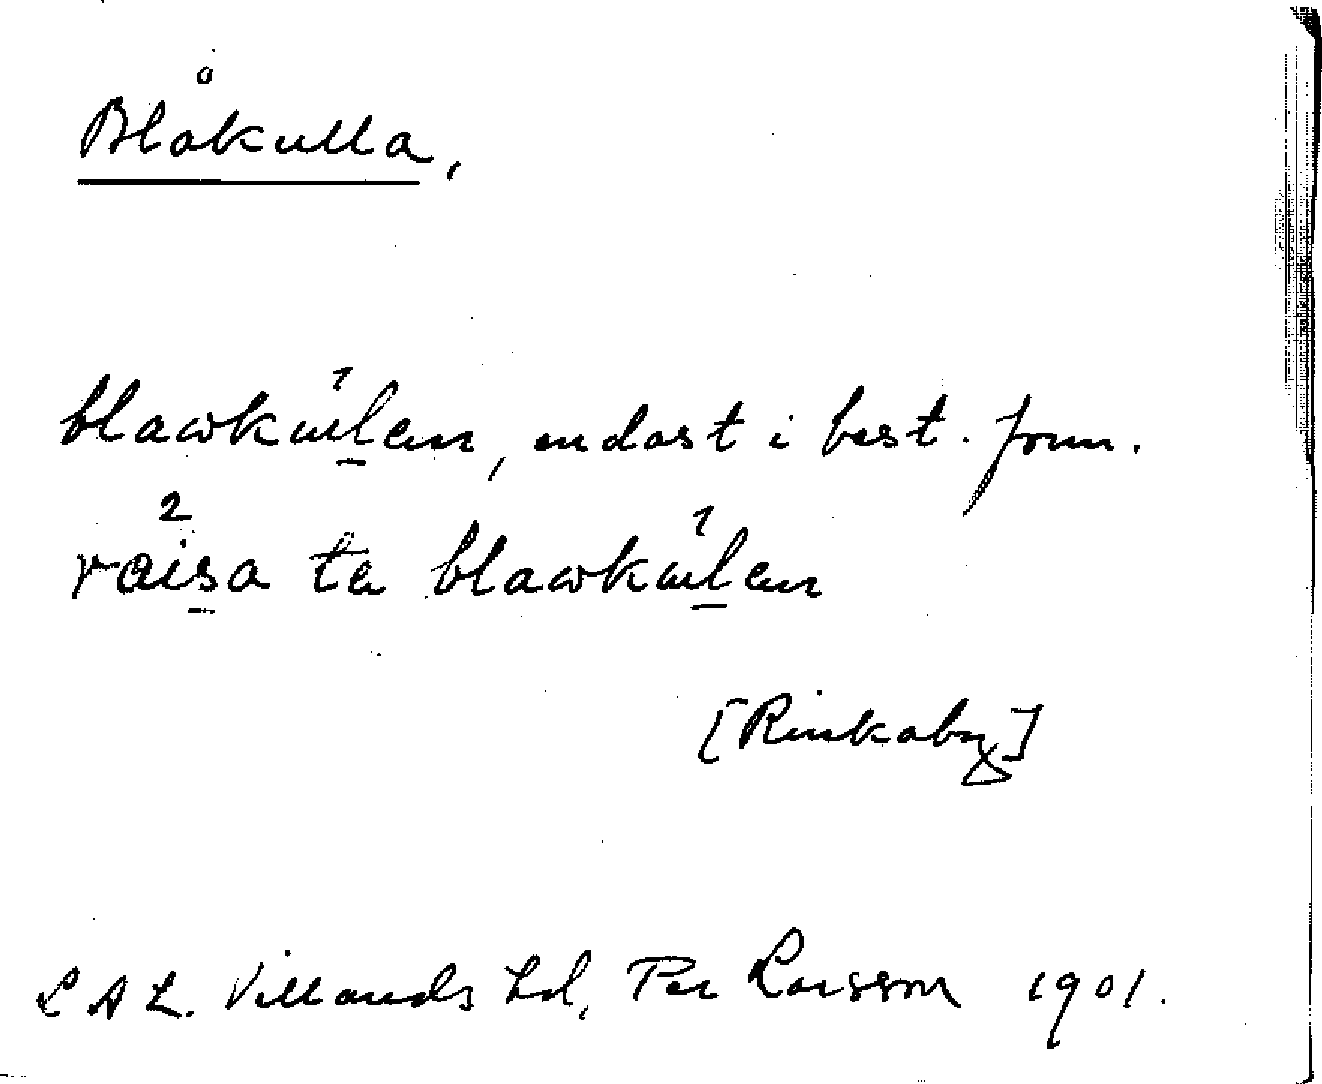 Blåkulla,
blawkuilen, endast i best. form.
raisa te blawkuilen
[Rinkaby]
L A L. Villands hd, Per Larsson 1901.